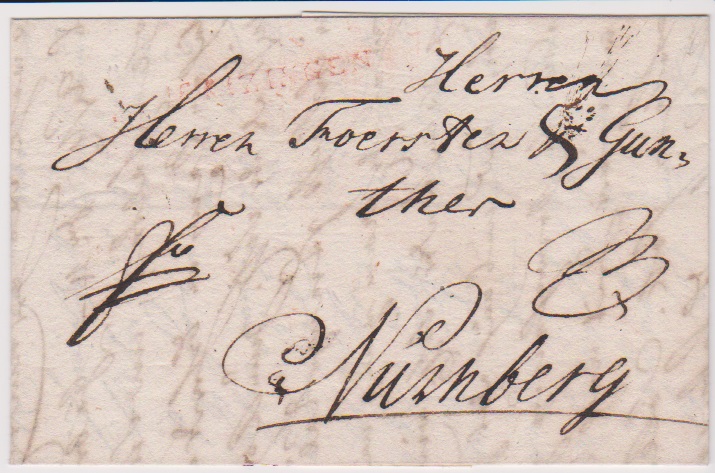 Herren
Herren Foerster & Gun-
ther
fr
Nürnberg